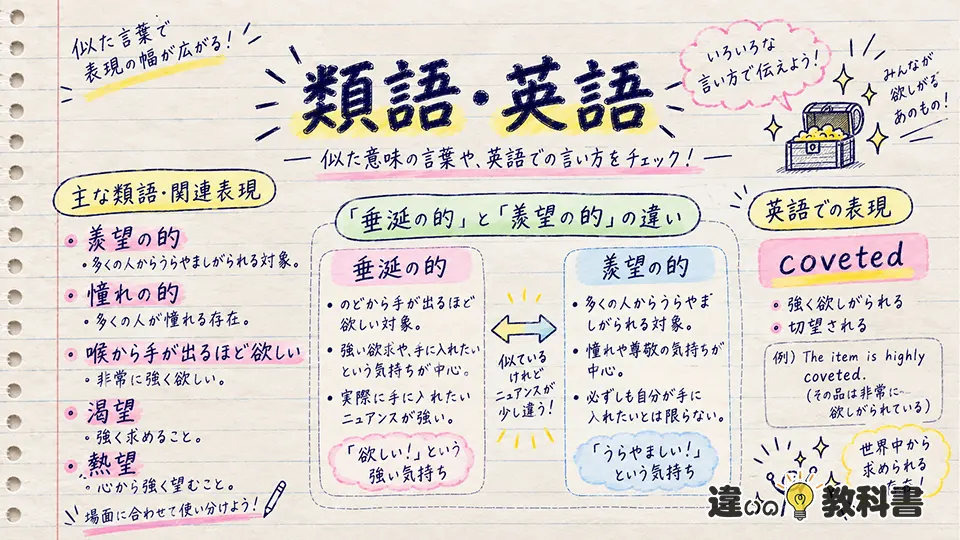 似た言葉で
表現の幅が広がる！
類語・英語
似た意味の言葉や、英語での言い方をチェック！
いろいろな
言い方で伝えよう！
みんなが
欲しがる
あのもの！
主な類語・関連表現
羨望の的
・多くの人からうらやましがられる対象。
憧れの的
・多くの人が憧れる存在。
喉から手が出るほど欲しい
・非常に強く欲しい。
渇望
・強く求めること。
熱望
・心から強く望むこと。
場面に合わせて使い分けよう！
「垂涎の的」と「羨望の的」の違い
垂涎の的
・のどから手が出るほど
欲しい対象。
・強い欲求や、手に入れたい
という気持ちが中心。
・実際に手に入れたい
ニュアンスが強い。
「欲しい！」という
強い気持ち
似ている
けれど
ニュアンスが
少し違う！
羨望の的
・多くの人からうらやま
しがられる対象。
・憧れや尊敬の気持ちが
中心。
・必ずしも自分が手に
入れたいとは限らない。
「うらやましい！」
という気持ち
英語での表現
coveted
強く欲しがられる
切望される
例) The item is highly
coveted.
(その品は非常に
欲しがられている)
世界中から
求められる
違いの教科書